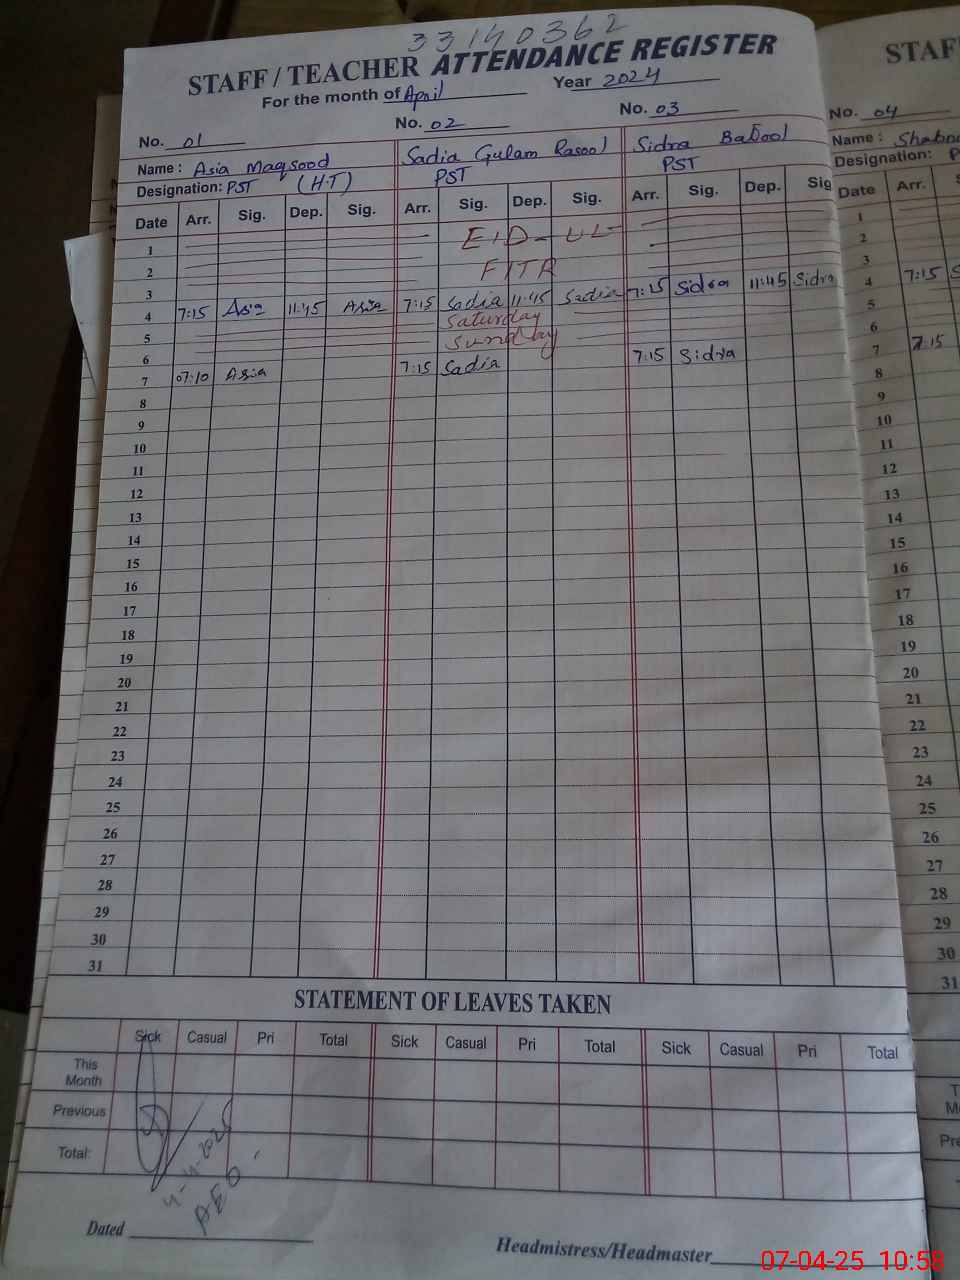 33140362
STAFF / TEACHER ATTENDANCE REGISTER
For the month of April Year 2024
No. 01 No. 02 No. 03
Name : Asia Maqsood Sadia Gulam Rasool Sidra Batool
Designation: PST (H.T) PST PST
Date Arr. Sig. Dep. Sig. Arr. Sig. Dep. Sig. Arr. Sig. Dep. Sig
1 EID-UL-
2 FITR
3
4 7:15 Asia 11:45 Asia 7:15 Sadia 11:45 Sadia 7:15 Sidra 11:45 Sidra
5 Saturday
6 Sunday
7 07:10 Asia 7:15 Sadia 7:15 Sidra
8
9
10
11
12
13
14
15
16
17
18
19
20
21
22
23
24
25
26
27
28
29
30
31
STATEMENT OF LEAVES TAKEN
Sick Casual Pri Total Sick Casual Pri Total Sick Casual Pri Total
This Month
Previous
Total:
AEO
Dated
Headmistress/Headmaster
STAF
No. 04
Name :
Designation: P
Date Arr. S
1
2
3
4 7:15 S
5
6
7 7:15
8
9
10
11
12
13
14
15
16
17
18
19
20
21
22
23
24
25
26
27
28
29
30
31
07-04-25 10:58